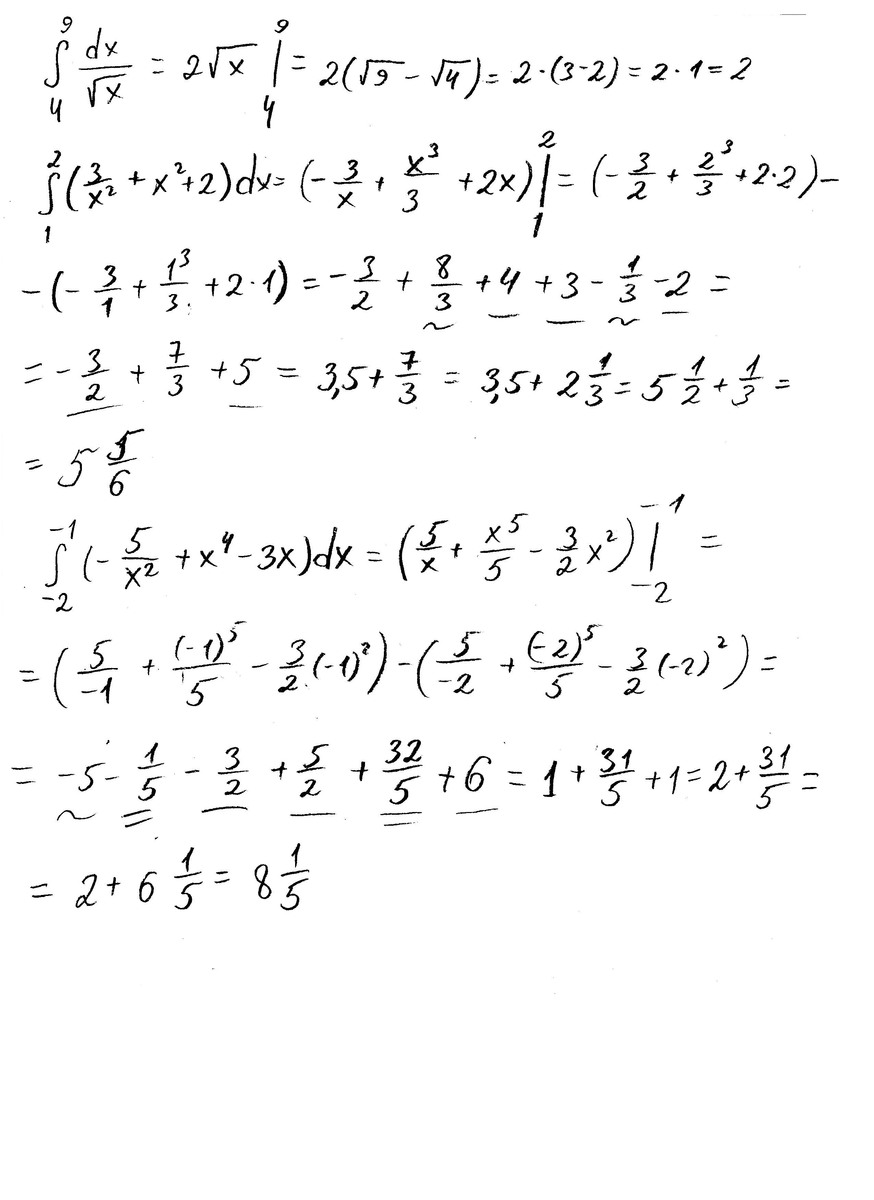 ∫₄⁹ dx/√x = 2√x |₄⁹ = 2(√9 - √4) = 2·(3-2) = 2·1 = 2
∫₁² (3/x² + x² + 2)dx = (-3/x + x³/3 + 2x)|₁² = (-3/2 + 2³/3 + 2·2) -
-(-3/1 + 1³/3 + 2·1) = -3/2 + 8/3 + 4 + 3 - 1/3 - 2 =
= -3/2 + 7/3 + 5 = 3,5 + 7/3 = 3,5 + 2 1/3 = 5 1/2 + 1/3 =
= 5 5/6
∫₋₂⁻¹ (-5/x² + x⁴ - 3x)dx = (5/x + x⁵/5 - 3/2 x²)|₋₂⁻¹ =
= (5/-1 + (-1)⁵/5 - 3/2 (-1)²) - (5/-2 + (-2)⁵/5 - 3/2 (-2)²) =
= -5 - 1/5 - 3/2 + 5/2 + 32/5 + 6 = 1 + 31/5 + 1 = 2 + 31/5 =
= 2 + 6 1/5 = 8 1/5